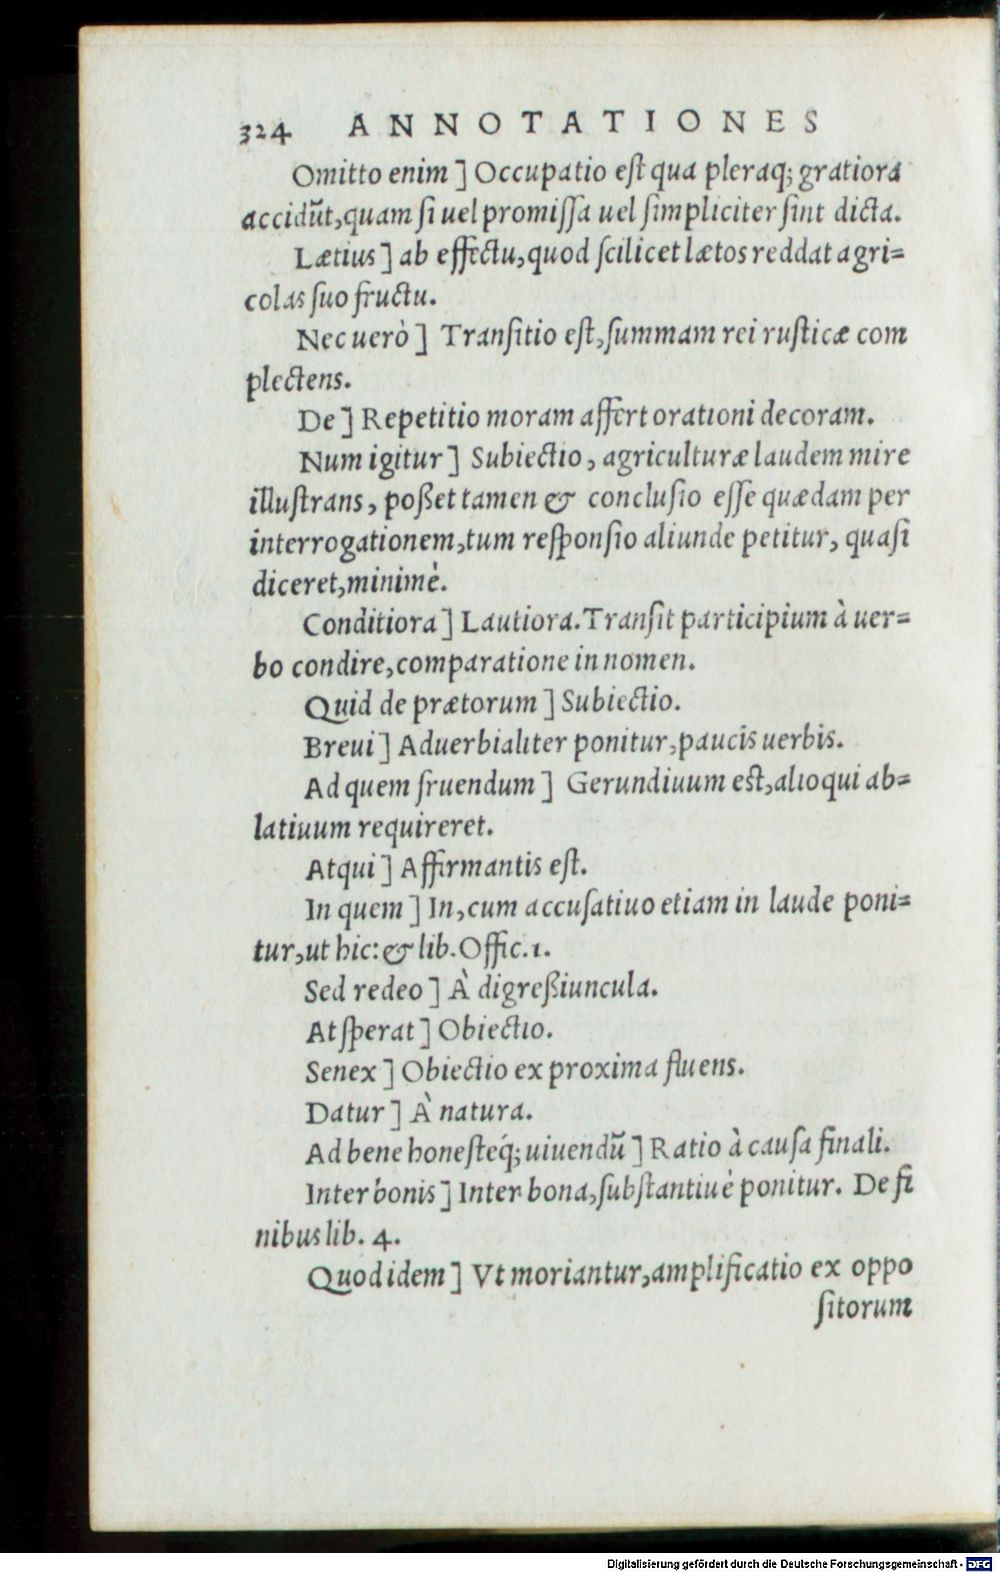 324 ANNOTATIONES
Omitto enim ] Occupatio eſt qua pleraq; gratiora
accidũt, quam ſi uel promiſſa uel ſimpliciter ſint dicta.
Lætius ] ab effectu, quod ſcilicet lætos reddat agri=
colas ſuo fructu.
Nec uerò ] Tranſitio eſt, ſummam rei ruſticæ com
plectens.
De ] Repetitio moram affert orationi decoram.
Num igitur ] Subiectio, agriculturæ laudem mire
illuſtrans, poßet tamen & concluſio eſſe quædam per
interrogationem, tum reſponſio aliunde petitur, quaſi
diceret, minimè.
Conditiora ] Lautiora. Tranſit participium à uer=
bo condire, comparatione in nomen.
Quid de prætorum ] Subiectio.
Breui ] Aduerbialiter ponitur, paucis uerbis.
Ad quem fruendum ] Gerundiuum est, alioqui ab=
latiuum requireret.
Atqui ] Affirmantis eſt.
In quem ] In, cum accuſatiuo etiam in laude poni=
tur, ut hic: & lib. Offic. 1.
Sed redeo ] À digreßiuncula.
At ſperat ] Obiectio.
Senex ] Obiectio ex proxima fluens.
Datur ] À natura.
Ad bene honeſteq́; uiuendũ ] Ratio à cauſa finali.
Inter bonis ] Inter bona, ſubſtantiuè ponitur. De fi
nibus lib. 4.
Quod idem ] Vt moriantur, amplificatio ex oppo
ſitorum
Digitalisierung gefördert durch die Deutsche Forschungsgemeinschaft - DFG